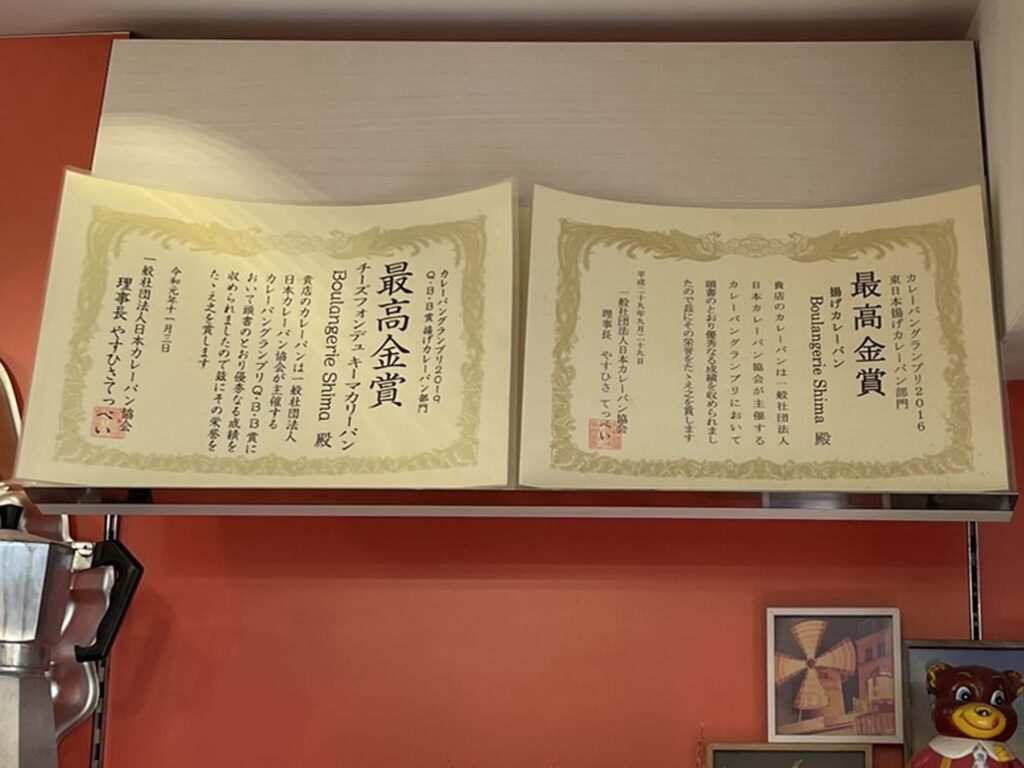 カレーパングランプリ2016
東日本揚げカレーパン部門
最高金賞
揚げカレーパン
Boulangerie Shima 殿
貴店のカレーパンは一般社団法人
日本カレーパン協会が主催する
カレーパングランプリにおいて
頭書のとおり優秀なる成績を収められまし
たので茲にその栄誉をたゝえ之を賞します
平成二十九年九月二十九日
一般社団法人日本カレーパン協会
理事長 やすひさ てっぺい
カレーパングランプリ2019
Q・B・B賞 揚げカレーパン部門
最高金賞
チーズフォンデュ キーマカリーパン
Boulangerie Shima 殿
貴店のカレーパンは一般社団法人
日本カレーパン協会が主催する
カレーパングランプリQ・B・B賞に
おいて頭書のとおり優秀なる成績を
収められましたので茲にその栄誉を
たゝえ之を賞します
令和元年十一月三日
一般社団法人日本カレーパン協会
理事長 やすひさてっぺい